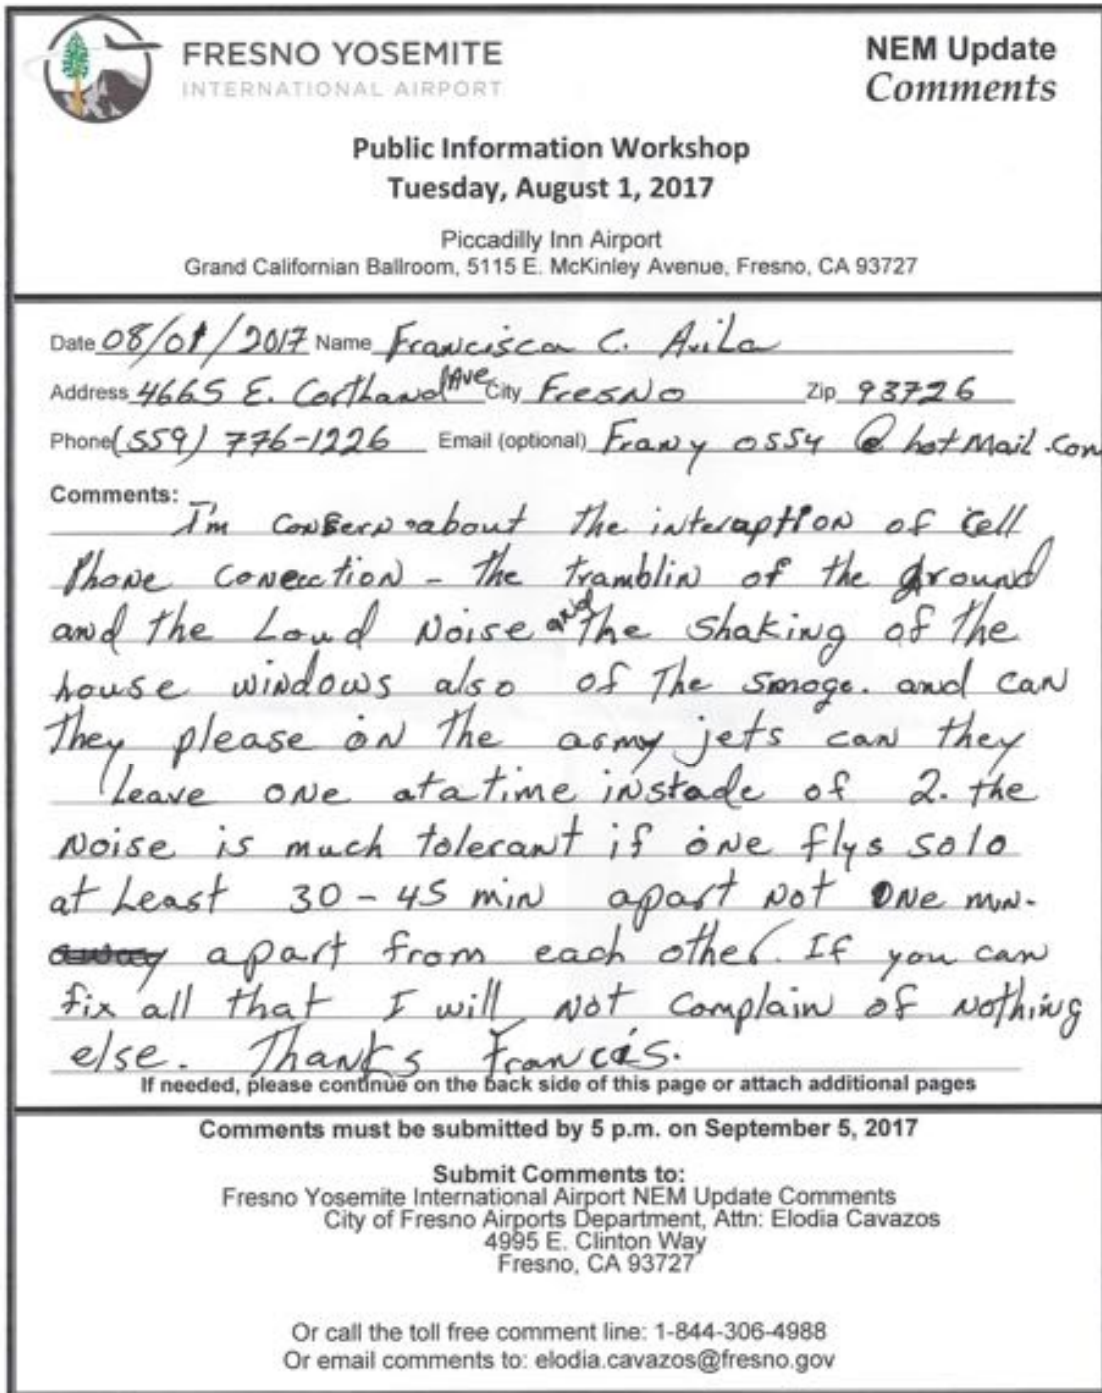 FRESNO YOSEMITE
INTERNATIONAL AIRPORT
NEM Update
Comments
Public Information Workshop
Tuesday, August 1, 2017
Piccadilly Inn Airport
Grand Californian Ballroom, 5115 E. McKinley Avenue, Fresno, CA 93727
Date 08/01/2017 Name Francisca C. Avila
Address 4665 E. Cortland Ave City Fresno Zip 93726
Phone (559) 776-1226 Email (optional) Frany 0554 @ hotmail.com
Comments:
I'm consern about the interaption of cell
Phone conecction - the tramblin of the ground
and the Loud Noise and the shaking of the
house windows also of The smoge. and can
They please on The army jets can they
Leave one at a time instade of 2. the
Noise is much tolerant if one flys solo
at Least 30-45 min apart not one min.
away apart from each other. If you can
fix all that I will not complain of nothing
else. Thanks Francis.
If needed, please continue on the back side of this page or attach additional pages
Comments must be submitted by 5 p.m. on September 5, 2017
Submit Comments to:
Fresno Yosemite International Airport NEM Update Comments
City of Fresno Airports Department, Attn: Elodia Cavazos
4995 E. Clinton Way
Fresno, CA 93727
Or call the toll free comment line: 1-844-306-4988
Or email comments to: elodia.cavazos@fresno.gov